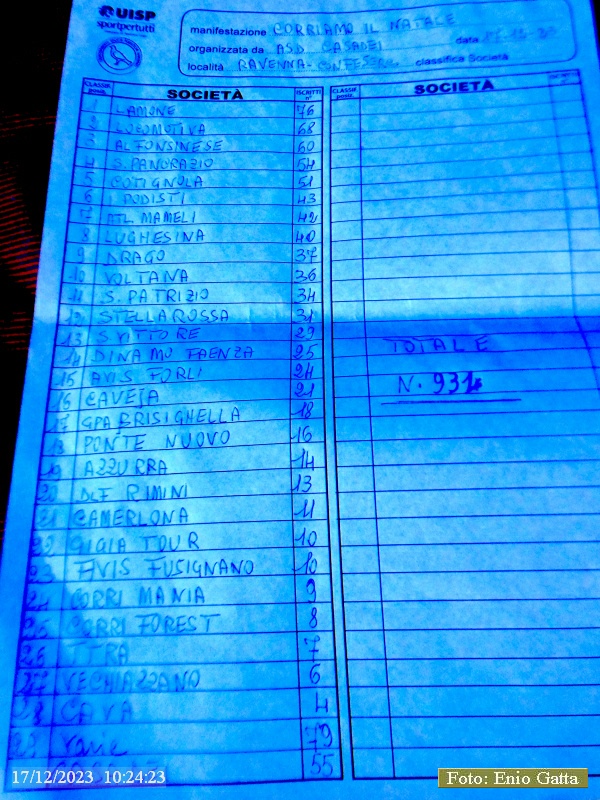 UISP
sportpertutti
manifestazione CORRIAMO IL NATALE
organizzata da ASD CASADEI data
località RAVENNA - classifica Società
CLASSIF. posiz. SOCIETÀ ISCRITTI n°
CLASSIF. posiz. SOCIETÀ
1 LAMONE 76
2 LOCOMOTIVA 68
3 ALFONSINESE 60
4 S. PANCRAZIO 54
5 COTIGNOLA 51
6 I PODISTI 43
7 ATL. MAMELI 42
8 LUGHESINA 40
9 DRAGO 37
10 VOLTANA 36
11 S. PATRIZIO 34
12 STELLA ROSSA 31
13 S VITTORE 29
14 DINAMO FAENZA 25
15 AVIS FORLI 24
16 CAVEJA 21
17 GPA BRISIGHELLA 18
18 PONTE NUOVO 16
19 AZZURRA 14
20 DLF RIMINI 13
21 CAMERLONA 11
22 GIGIA TOUR 10
23 AVIS FUSIGNANO 10
24 CORRI MANIA 9
25 CORRI FOREST 8
26 7
27 VECHIAZZANO 6
28 CAVA 4
29 Varie 79
55
TOTALE
N. 931
17/12/2023 10:24:23
Foto: Enio Gatta